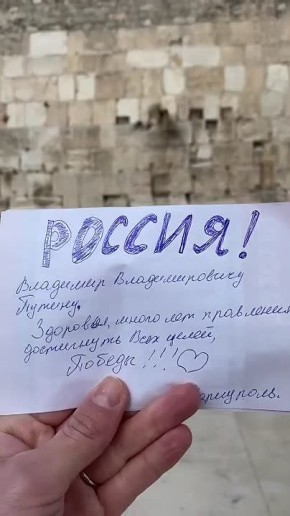 РОССИЯ!
Владимир Владимировичу
Путину.
Здоровья, много лет правления
достигнуть Всех целей,
Победы!!!
ариуполь.